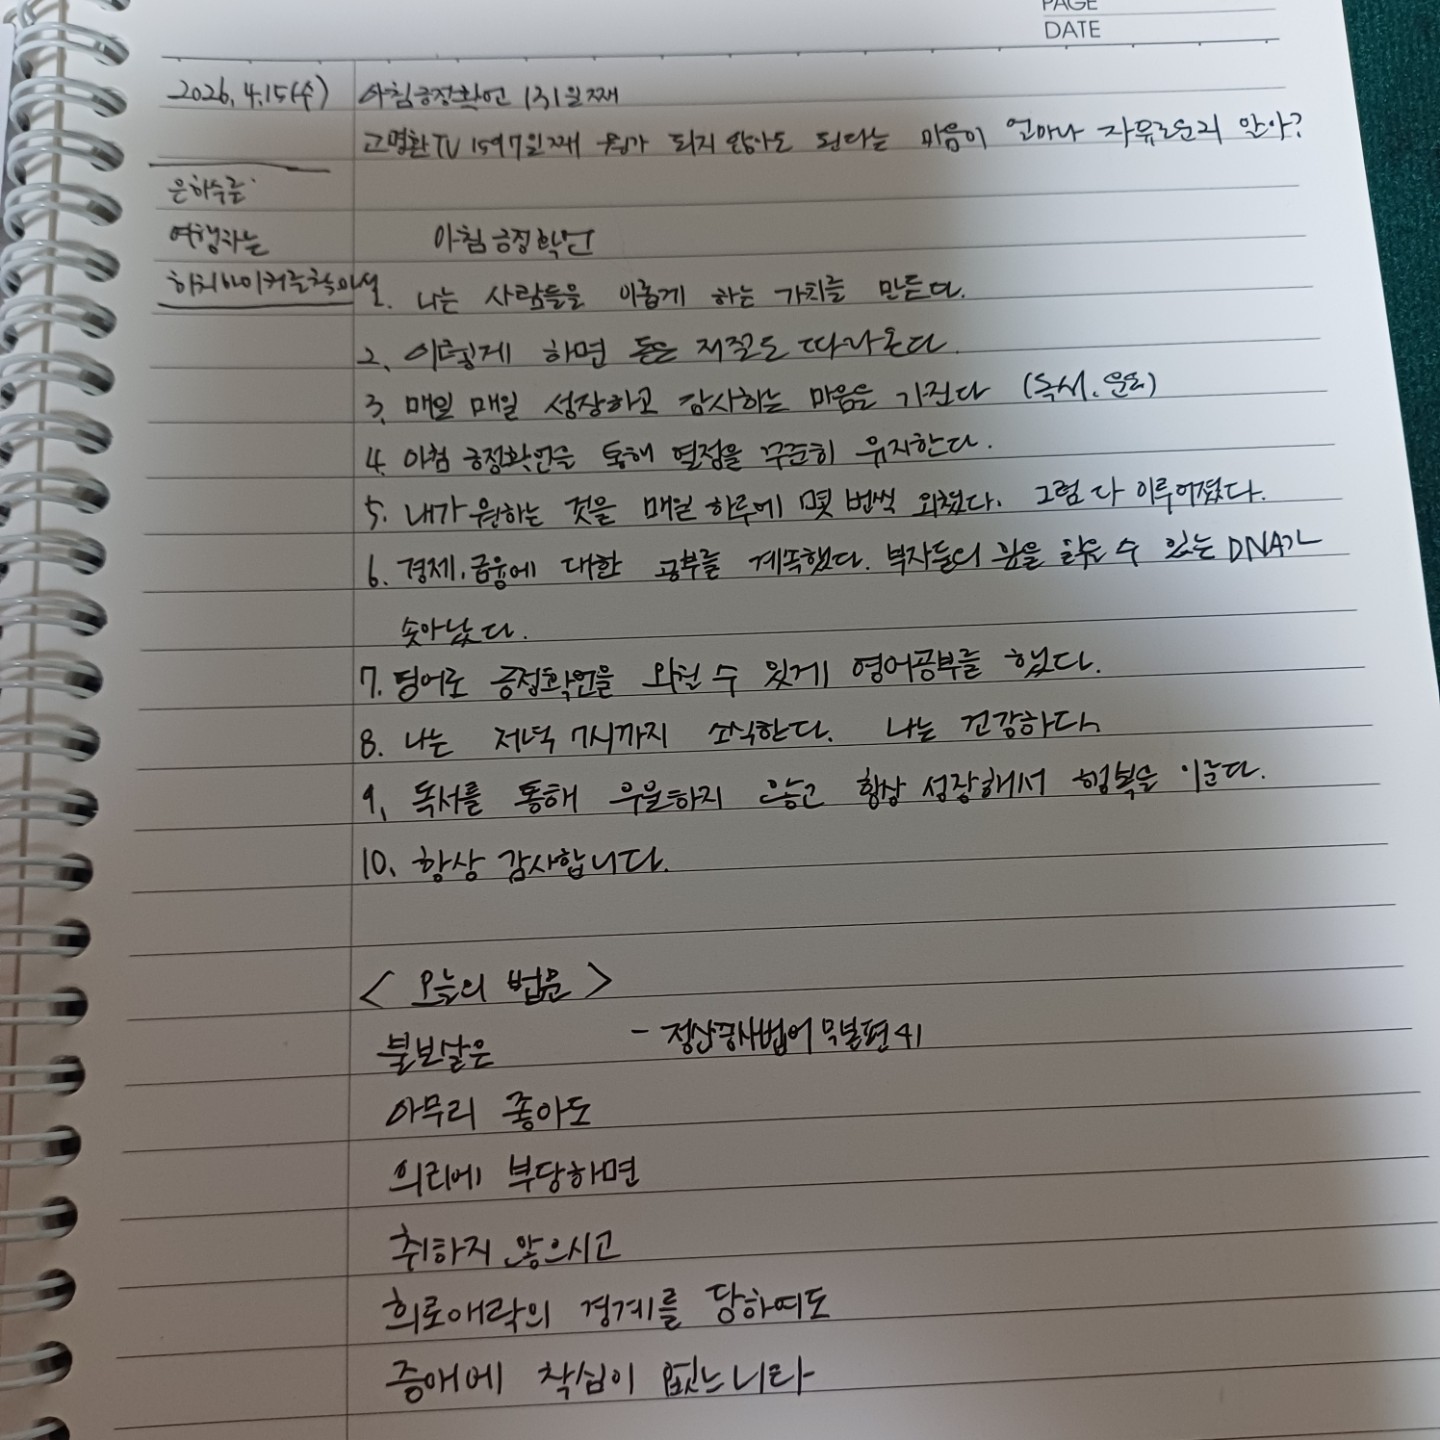 PAGE
DATE
2026. 4.15(수) 아침긍정확언 131일째
고명환TV 1597일째 뭔가 되지 않아도 된다는 마음이 얼마나 자유로운지 알아?
은하수를
여행하는
히치하이커를 위한
아침 긍정확언
1. 나는 사람들을 이롭게 하는 가치를 만든다.
2. 이렇게 하면 돈은 저절로 따라온다.
3. 매일 매일 성장하고 감사하는 마음을 가진다 (독서. 운동)
4. 아침 긍정확언을 통해 열정을 꾸준히 유지한다.
5. 내가 원하는 것을 매일 하루에 몇 번씩 외쳤다. 그럼 다 이루어졌다.
6. 경제.금융에 대한 공부를 계속했다. 부자들의 맘을 읽을 수 있는 DNA가
솟아났다.
7. 영어로 긍정확언을 외칠 수 있게 영어공부를 했다.
8. 나는 저녁 7시까지 소식한다. 나는 건강하다.
9. 독서를 통해 우울하지 않고 항상 성장해서 행복을 이룬다.
10. 항상 감사합니다.
< 오늘의 법문 >
불보살은 - 정산종사법어 무본편 41
아무리 좋아도
의리에 부당하면
취하지 않으시고
희로애락의 경계를 당하여도
증애에 착심이 없느니라